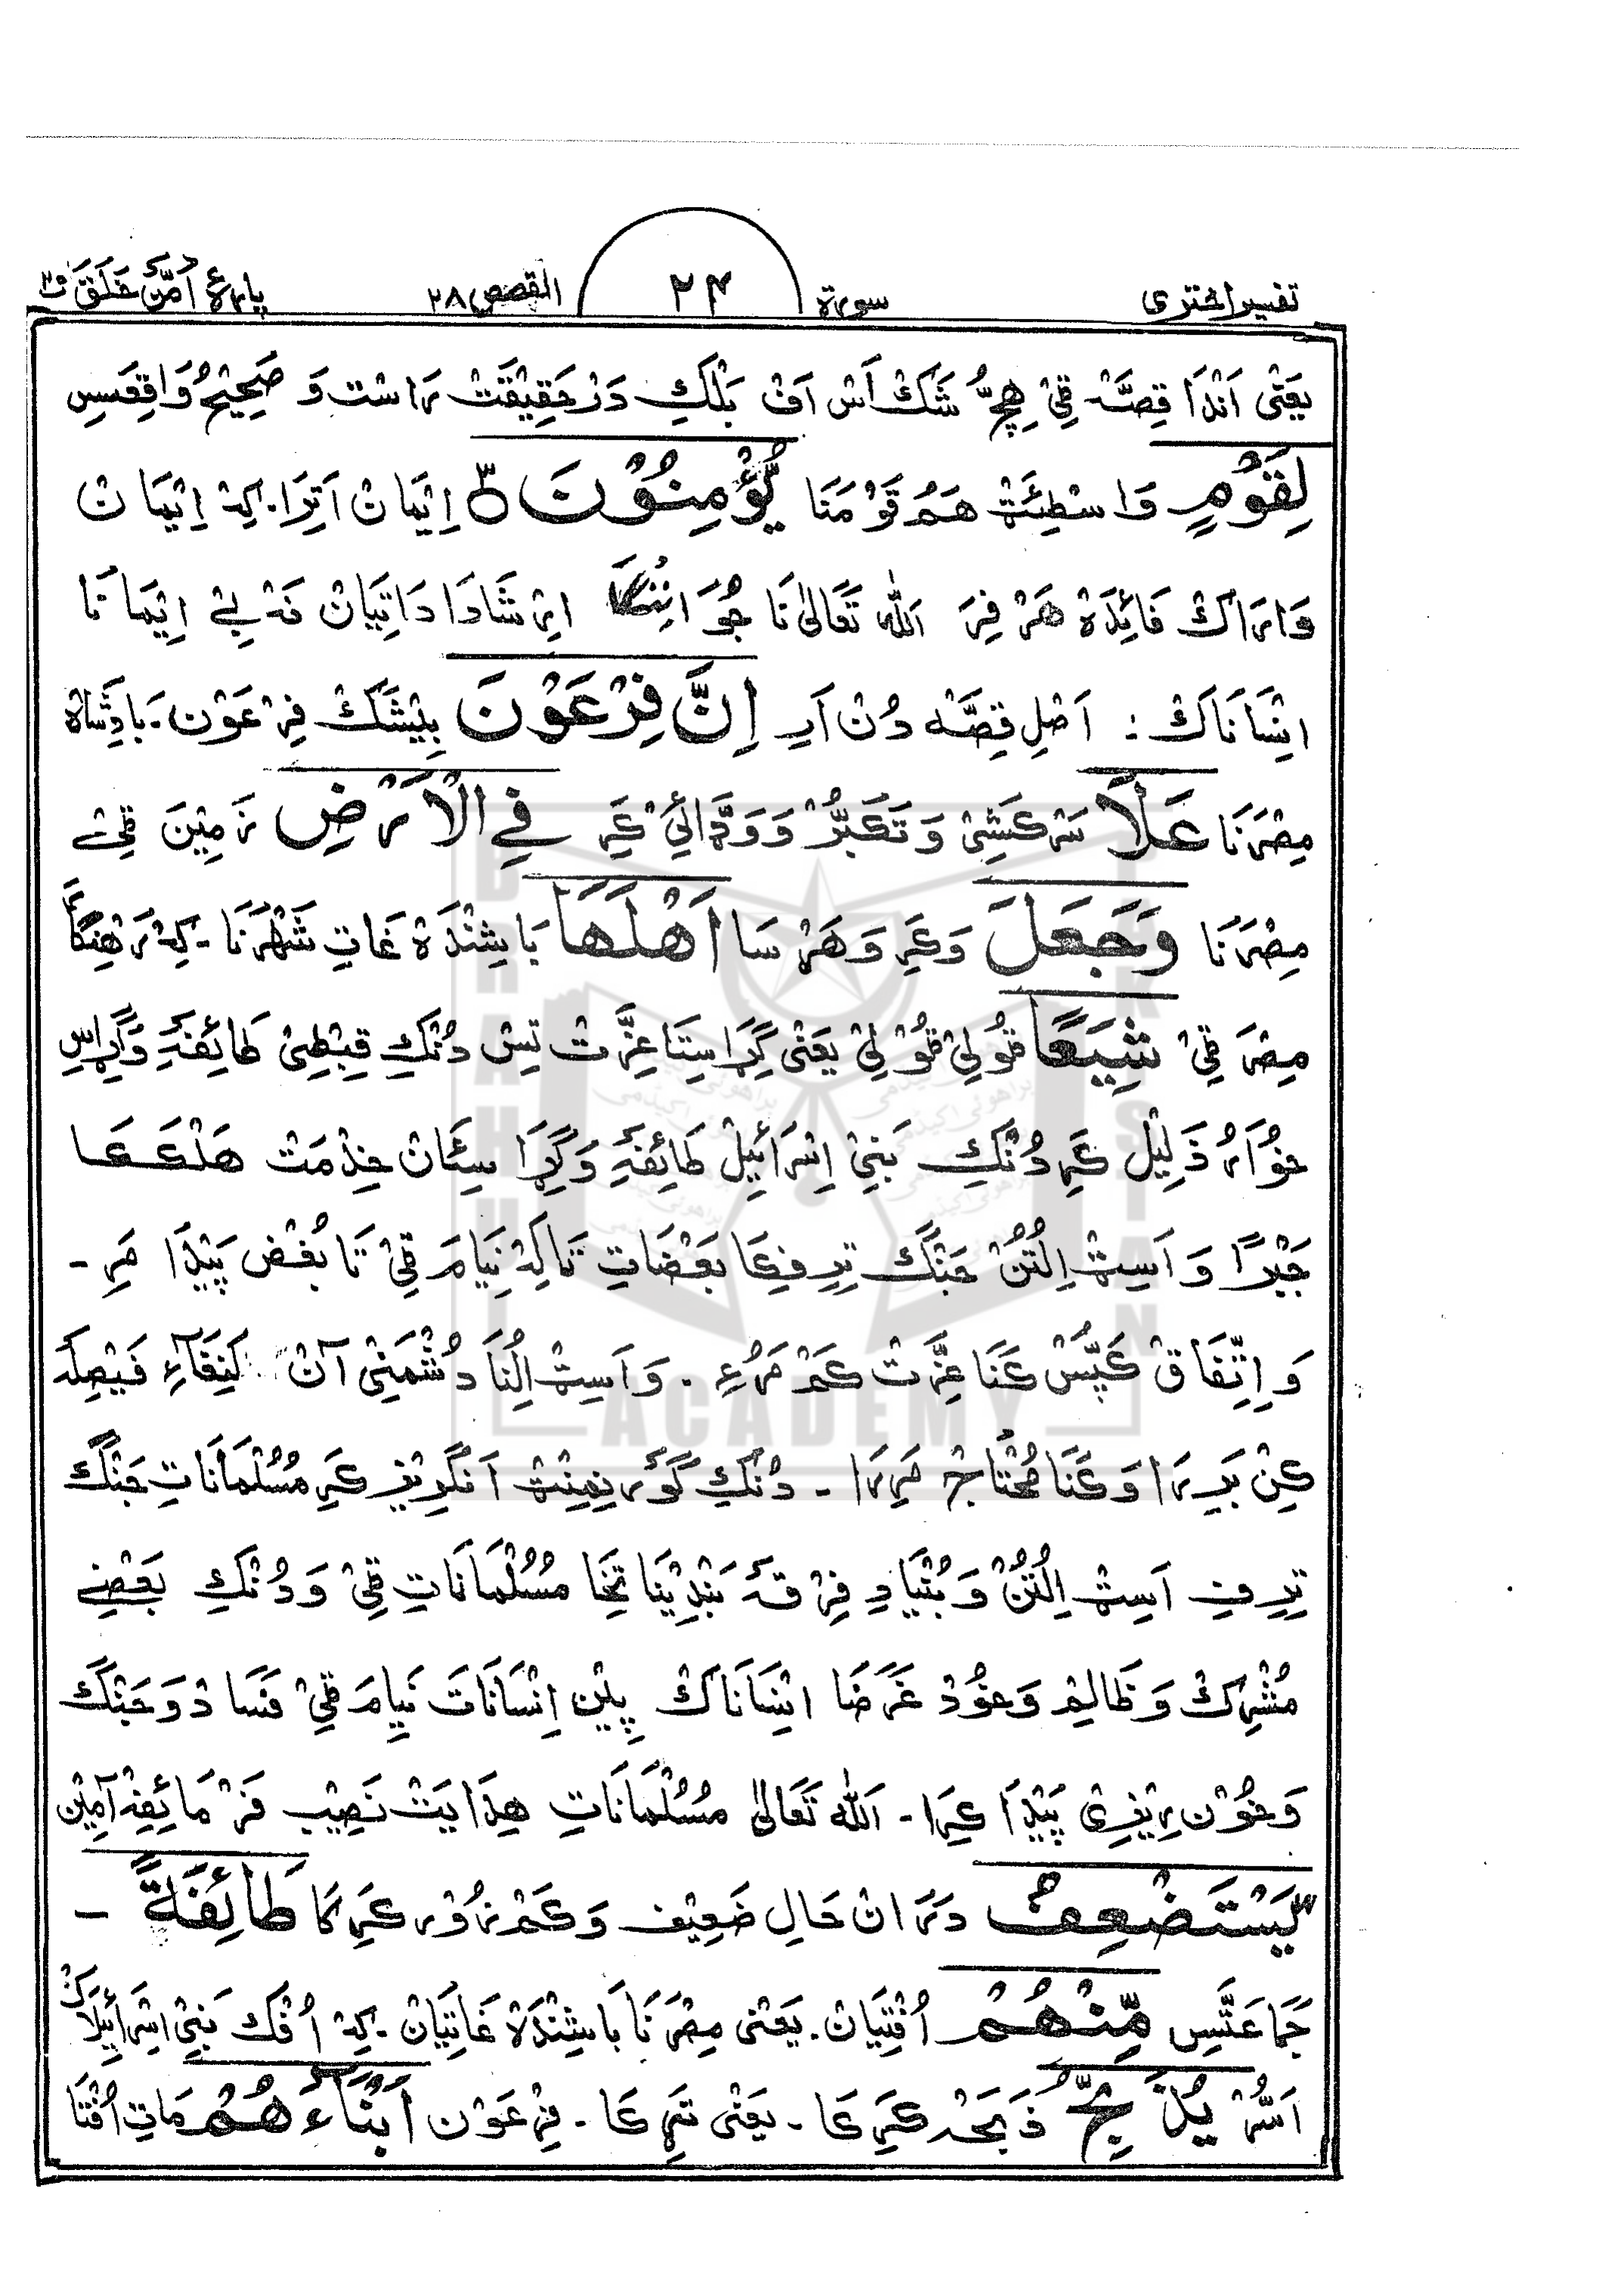 تفسیر اختری سورة ۲۴ القصص ۲۸ پارهٔ اَمَّنْ خَلَقَ
یَعْنٰی اَنْدَا قِصَّہ ٹِیْ هِچُّ شَکْ اَسْ اَفْ بَلْکِہ دَرْحَقِیْقَتْ رَاسْت وَ صَحِیْحُ وَاقِعَسِ
لِقَوْمٍ وَاسْطِئَتْ هَمُ قَوْمَنَا یُّؤْمِنُوْنَ ۳ اِیْمَانْ اَتِرَا. کِہْ اِیْمَانْ
وَارَاکْ فَائِدَہْ هَرْفِرَ اَللّٰہ تَعَالیٰ نَا جُوَانِنْگَا اِرْشَادَا دَاتِیَانْ نَہْ بے اِیْمَانَا
اِنْسَانَاکْ : اَصْلِ قِصَّہ دُنْ اَرِ اِنَّ فِرْعَوْنَ بِیْشَکْ فِرْعَوْن. بَادِشَاہْ
مِصْرَنَا عَلَا سَرْکَشِیْ وَ تَکَبُّرْ وَ وَڈَّائِیْ کَرِ فِی الْاَرْضِ زَمِیْنَ ٹِیْ
مِصْرَنَا وَجَعَلَ وَکَرِ وَ هَرْسَا اَهْلَهَا بَاشِنْدَہْ غَاتِ شَهْرَنَا. کِہْ رَهِنْگَا
مِصْرَ ٹِیْ شِیَعًا ٹُولِیْ ٹُوْلِیْ یَعْنٰی کَرَاسِتَا عِزَّتْ تِسْ دُنْکِہ قِبْطِیْ طَائِفَہِ وَکَرَاسِ
خُوَارُ ذَلِیْل کَرِ دُنْکِہ بَنِیْ اِسْرَائِیْل طَائِفَہِ وَکَرَا سِیَّانْ خِذْمَتْ هَلْکَکَا
جَبْرًا وَ اَسِٹْ اِلُتُنْ جَنْگ تِرِفِکَا بَعْضَاتِ تَاکِہْ نِیَامَ ٹِیْ تَا بُغْض پَیْدَا مَرِ -
وَ اِتِّفَاقْ کَپَّسْ کَنَا عِزَّتْ کَمْ مَرُءِ . وَ اَسِٹْ اِلُنَا دُشْمَنِیْ آنْ کَنِغَآءِ فَیْصِلَہ
کِنْ بَرِرَا وَ کَنَا مُحْتَاجْ مَرِرَا - دُنْکِہ گَوَرْنِمِنْٹ اَنْگَرِیْز کَرِ مُسُلْمَانَاتِ جَنْگ
تِرِفِ اَسِٹْ اِلُتُنْ وَ بُنْیَادِ فِرْقَہَ بَنْدِیْنَا تِخَا مُسُلْمَانَاتِ ٹِیْ وَ دُنْکِہ بَعْضِے
مُشْرِکْ وَ ظَالِمْ وَ خُوْدْ غَرَضَا اِنْسَانَاکْ پِلِیْن اِنْسَانَاتَ نِیَامَ ٹِیْ فَسَادْ وَ جَنْگ
وَ خُوْن رِیْزِیْ پَیْدَا کِرَا - اَللّٰہ تَعَالیٰ مُسُلْمَانَاتِ هِدَایَتْ نَصِیْب فَرْمَائِفِہْ آمِیْن
یَّسْتَضْعِفُ دَرَانْ حَالِ ضَعِیْف وَ کَمْ زُوْر کَرِکَا طَائِفَةً -
جَمَاعَتَّسِ مِّنْهُمْ اُفْتِیَانْ. یَعْنٰی مِصْرَنَا بَاشِنْدَہْ غَاتِیَانْ. کِہْ اُفْک بَنِیْ اِسْرَائِیْلَاکْ
اَسُّرْ یُذَبِّحُ ذَبَحْہ کَرِکَا - یَعْنٰی تَهِرِکَا - فِرْعَوْن اَبْنَآءَهُمْ مَاتِ اُفْتَا